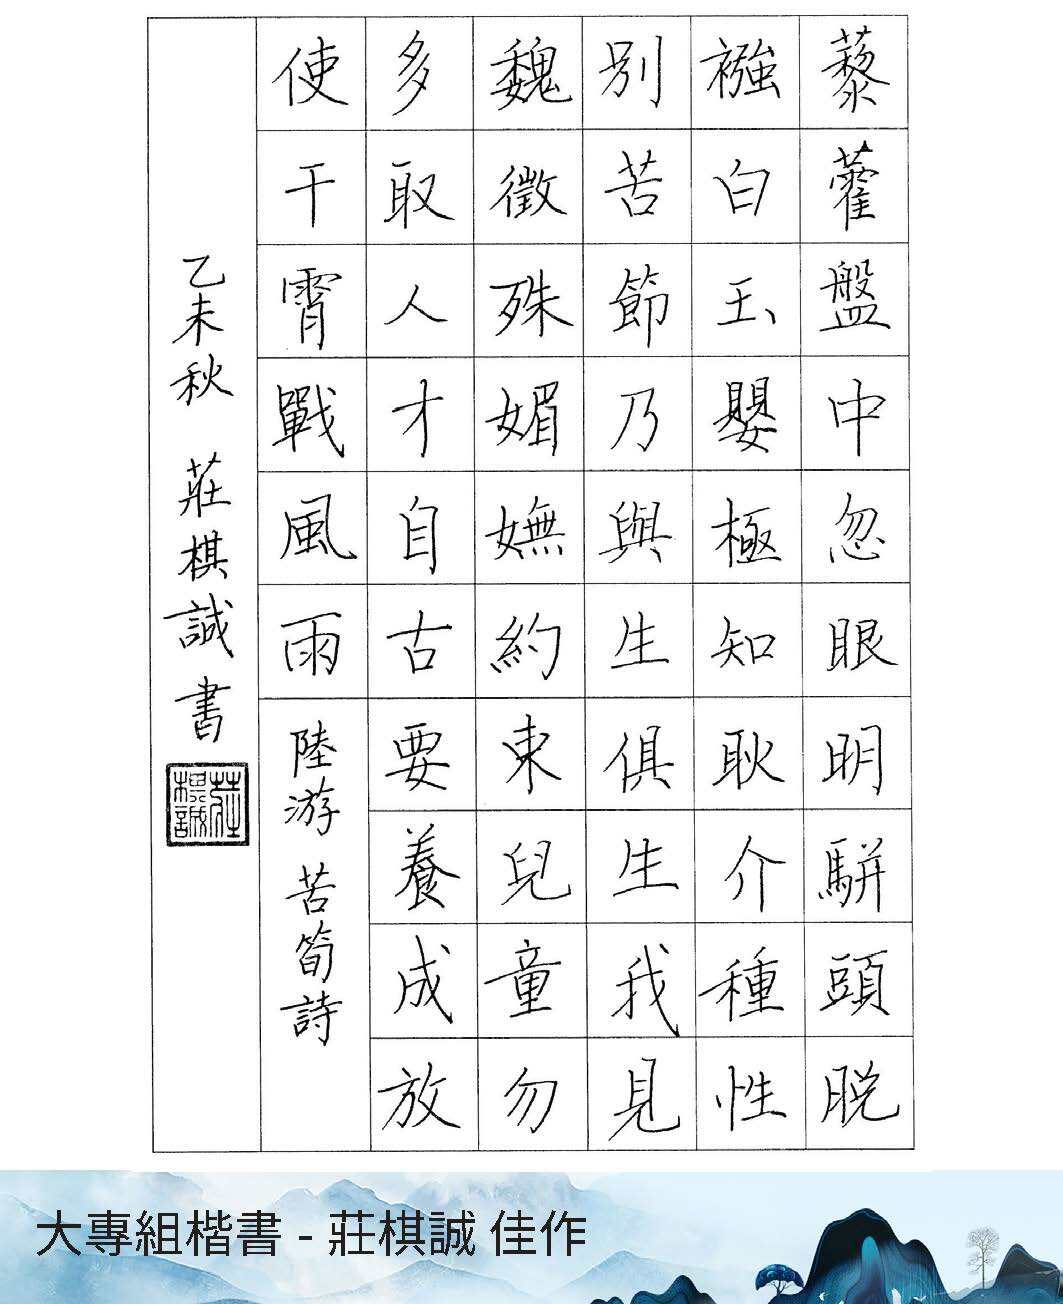 藜藿盤中忽眼明駢頭脫
襁白玉嬰極知耿介種性
別苦節乃與生俱生我見
魏徵殊媚嫵約束兒童勿
多取人才自古要養成放
使干霄戰風雨
陸游 苦筍詩
乙未秋 莊棋誠書
莊棋誠
大專組楷書 - 莊棋誠 佳作